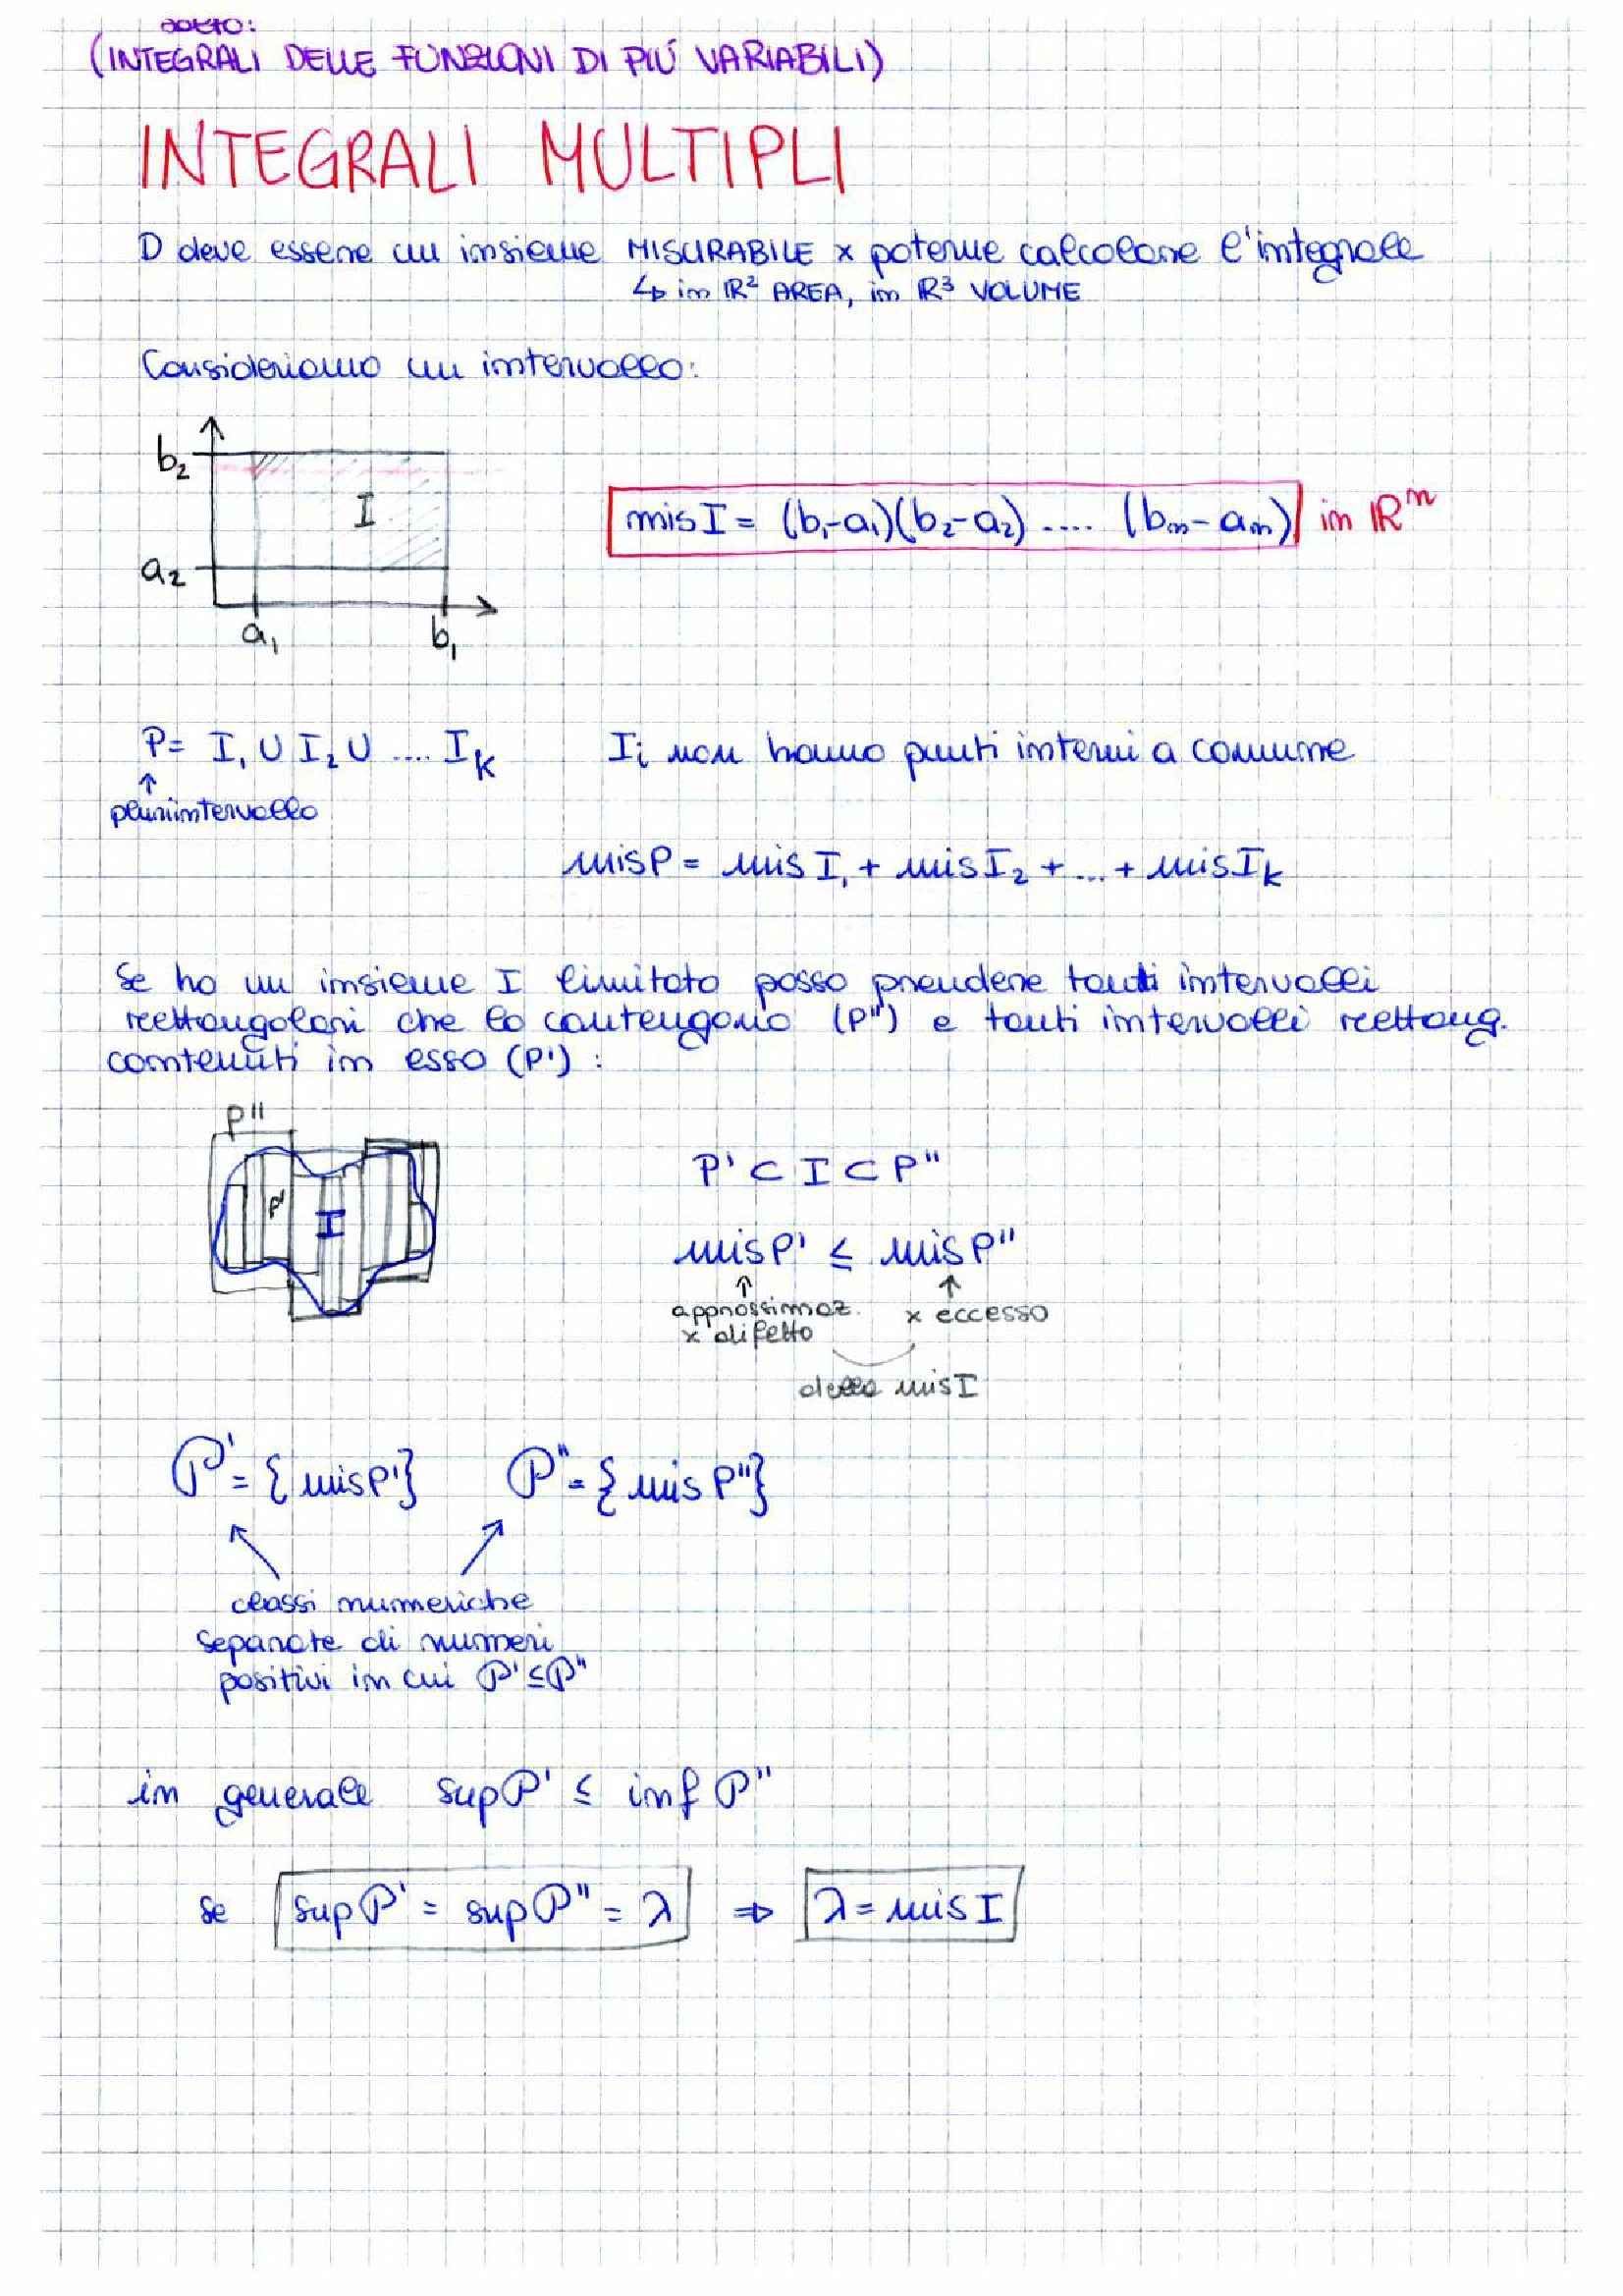 (INTEGRALI DELLE FUNZIONI DI PIÙ VARIABILI)
INTEGRALI MULTIPLI
D deve essere un insieme MISURABILE x poterne calcolare l'integrale
↳ in ℝ² AREA, in ℝ³ VOLUME
Consideriamo un intervallo:
b₂
I
a₂
a₁ b₁
mis I = (b₁-a₁)(b₂-a₂) .... (bₙ-aₙ) in ℝⁿ
P = I₁ ∪ I₂ ∪ .... Iₖ Iᵢ non hanno punti interni a comune
↑
plurintervallo
mis P = mis I₁ + mis I₂ + ... + mis Iₖ
Se ho un insieme I limitato posso prendere tanti intervalli
rettangolari che lo contengono (P") e tanti intervalli rettang.
contenuti in esso (P') :
P"
P'
I
P' ⊂ I ⊂ P"
mis P' ≤ mis P"
↑ ↑
approssimaz. x eccesso
x difetto
della mis I
𝒫' = {mis P'} 𝒫" = {mis P"}
classi numeriche
separate di numeri
positivi in cui 𝒫' ≤ 𝒫"
in generale sup 𝒫' ≤ inf 𝒫"
se sup 𝒫' = sup 𝒫" = λ ⇒ λ = mis I